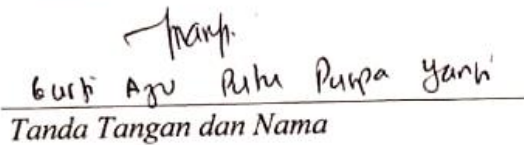 Gusti Ayu Putu Puspa Yanti
Tanda Tangan dan Nama